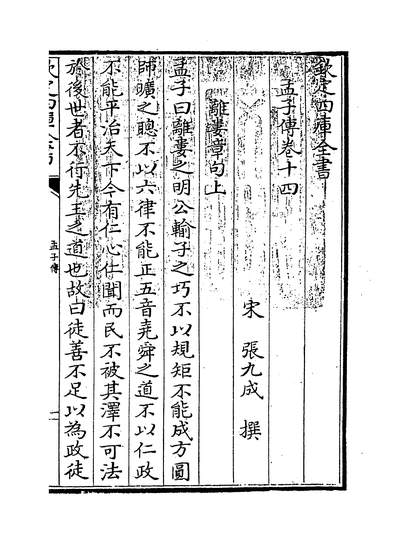 欽定四庫全書
孟子傳卷十四
宋　張九成　撰
離婁章句上
孟子曰離婁之明公輸子之巧不以規矩不能成方圓
師曠之聰不以六律不能正五音堯舜之道不以仁政
不能平治天下今有仁心仁聞而民不被其澤不可法
於後世者不行先王之道也故曰徒善不足以為政徒
孟子傳